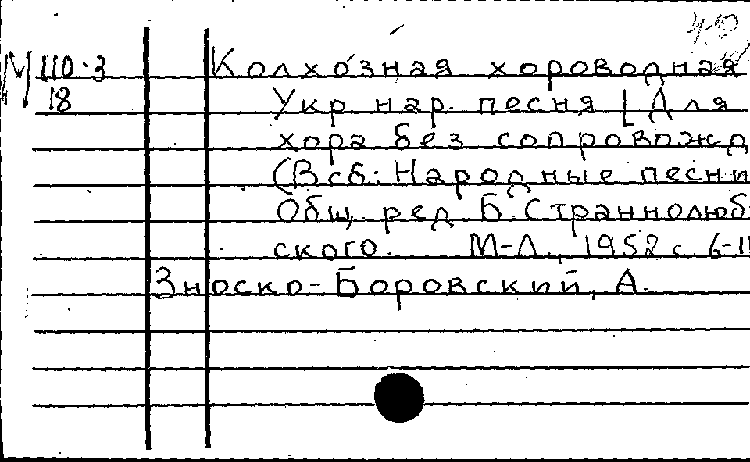 М 110.3 Колхозная хороводная
18 Укр. нар. песня [Для
хора без сопровожд
(В сб: Народные песни
Общ. ред. Б. Страннолюб
ского. М-Л., 1952 с 6-11
Зноско-Боровский, А.